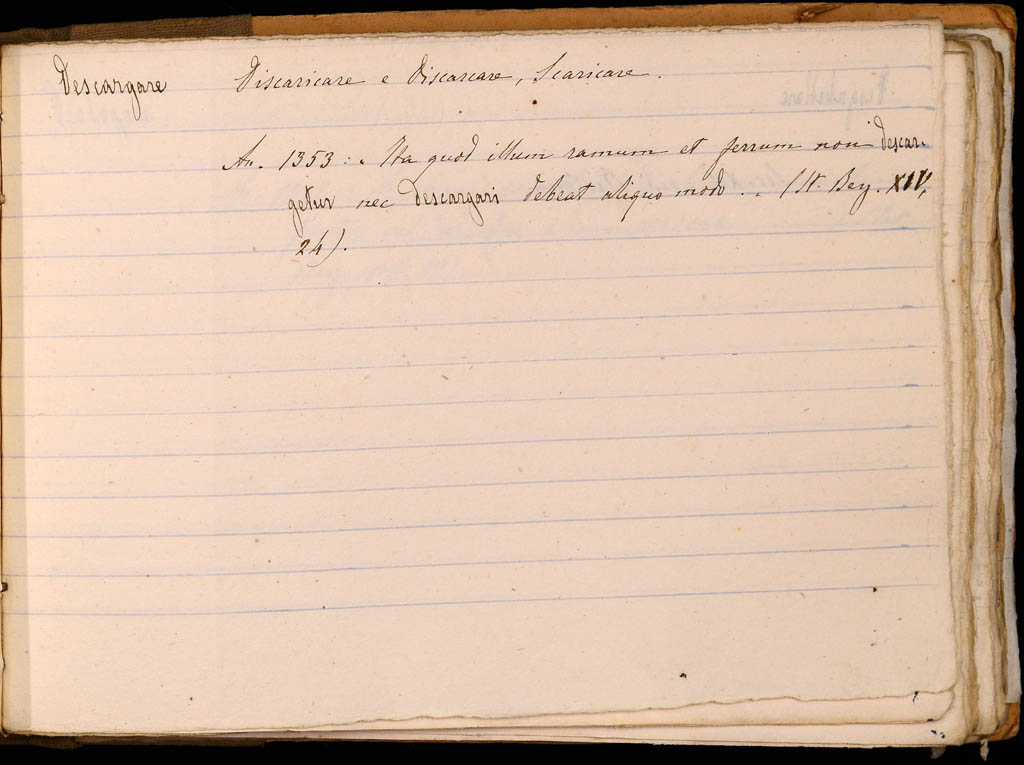 Descargare Discaricare e Discarcare, Scaricare.
An. 1353: Ita quod illum ramum et ferrum non descar-
getur nec descargari debeat aliquo modo .. (St. Bey. XIV,
24).